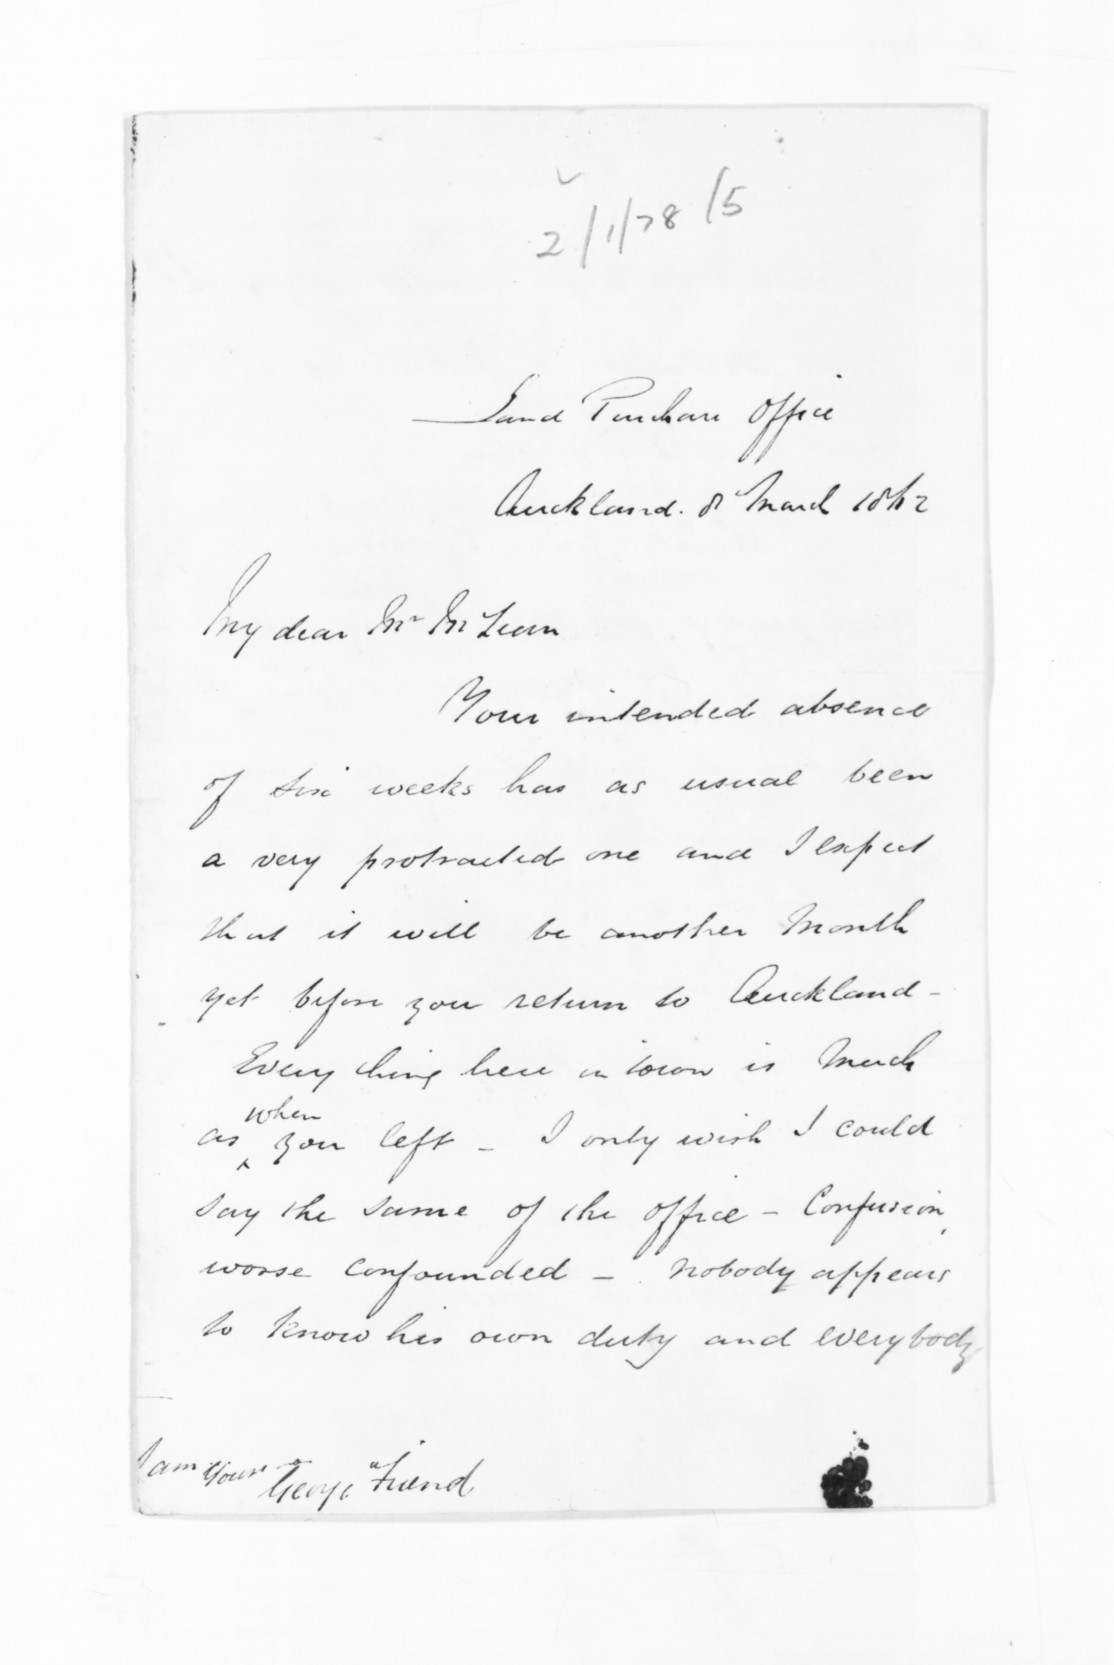 2/1/78/5
Land Purchase Office
Auckland. 8 March 1862
My dear Mr McLean
Your intended absence
of six weeks has as usual been
a very protracted one and I expect
that it will be another month
yet before you return to Auckland -
Every thing here in town is much
as when you left - I only wish I could
say the same of the office - Confusion,
worse confounded - nobody appears
to know his own duty and everybody
I am yours
George "Friend